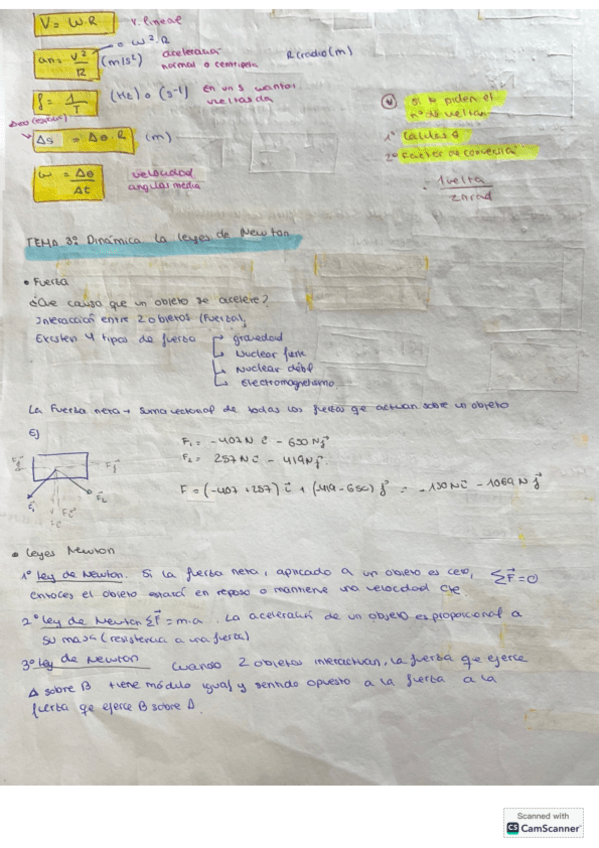 V = W.R v. lineal
an = V²/R = ω².R (m/s²) aceleración normal o centripeta R (radio (m)
f = 1/T (Hz) o (s⁻¹) En un s cuantas vueltas da
Δs = Δθ.R (m)
ω = Δθ/Δt velocidad angular media
Si te piden el nº de vueltas
1º Calculas θ
2º Factor de conversión
1 vuelta / 2π rad
TEMA 3: Dinámica. La leyes de Newton
• Fuerza
¿Que causa que un objeto se acelere?
Interacción entre 2 objetos (Fuerza),
Existen 4 tipos de fuerza → gravedad
→ Nuclear fuerte
→ Nuclear débil
→ Electromagnetismo
La Fuerza neta → suma vectorial de todas las fuerzas qe actuan sobre un objeto
Ej
F₁ = -407 N i⃗ - 650 N j⃗
F₂ = 257 N i⃗ - 419 N j⃗
F = (-407 + 257) i⃗ + (-419 - 650) j⃗ = -150 N i⃗ - 1069 N j⃗
F⃗₁ F⃗₂
• Leyes Newton
1º Ley de Newton. Si la fuerza neta, aplicado a un objeto es cero, ΣF⃗ = 0
entoces el objeto estará en reposo o mantiene una velocidad cte
2º Ley de Newton ΣF⃗ = m.a . La aceleración de un objeto es proporcional a
su masa (resistencia a una fuerza)
3º Ley de Newton Cuando 2 objetos interactuan, la fuerza qe ejerce
A sobre B tiene módulo igual y sentido opuesto a la fuerza a la
fuerza qe ejerce B sobre A.
Scanned with
CS CamScanner